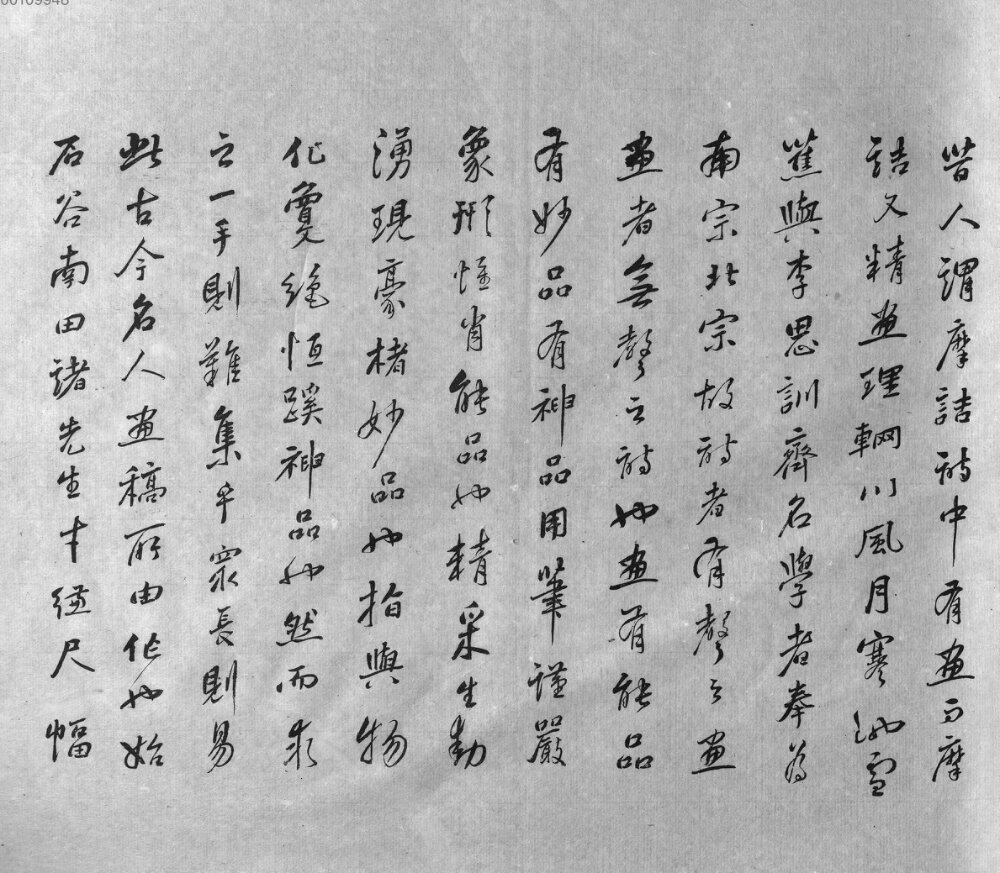 00109948
昔人謂摩詰詩中有畫而摩
詰又精畫理輞川風月寒池雪
蕉與李思訓齊名學者奉為
南宗北宗故詩者有聲之畫
畫者無聲之詩也畫有能品
有妙品有神品用筆謹嚴
象形惟肖能品也精采生動
湧現豪楮妙品也指與物
化敻絕恒蹊神品也然而求
之一手則難集乎眾長則易
此古今名人畫稿所由作也始
石谷南田諸先生寸縑尺幅